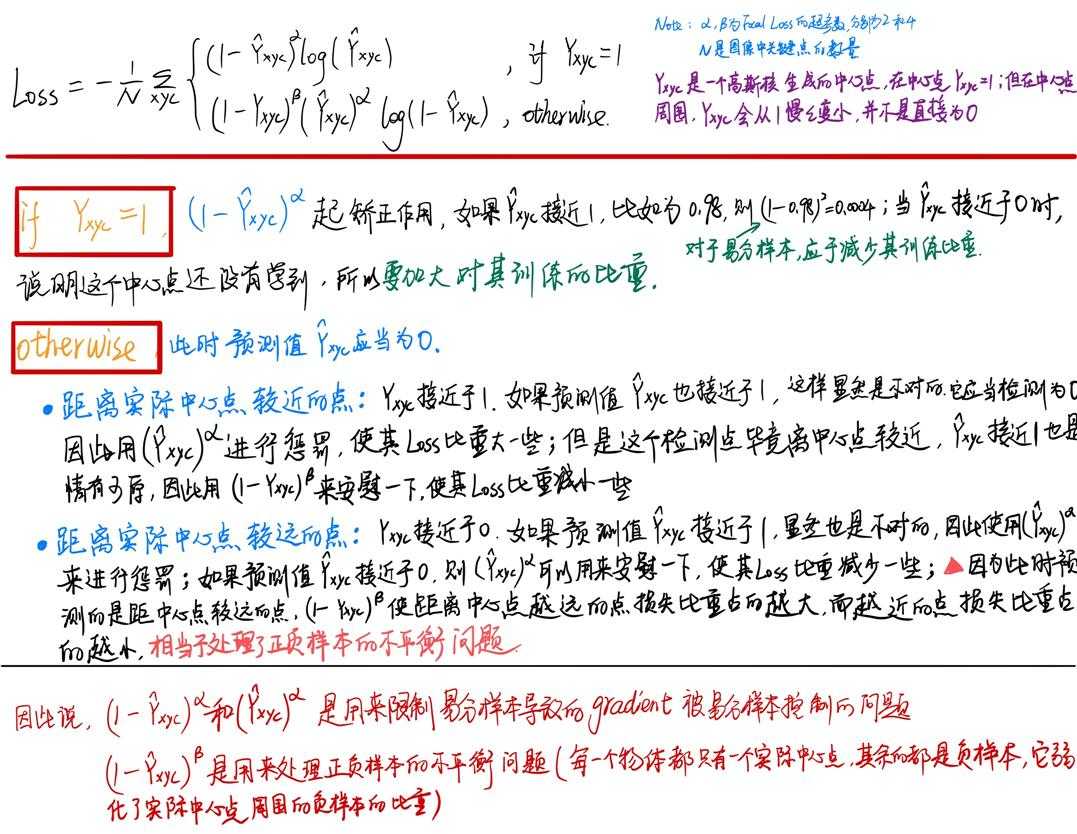 Loss = -\frac{1}{N} \sum_{xyc} \begin{cases} (1-\hat{Y}_{xyc})^α log(\hat{Y}_{xyc}) , if Y_{xyc}=1 \\ (1-Y_{xyc})^β (\hat{Y}_{xyc})^α log(1-\hat{Y}_{xyc}) , otherwise. \end{cases}
Note: α,β为Focal Loss的超参数,分别为2和4
N是图像中关键点的数量
Y_{xyc}是一个高斯核生成的中心点,在中心点Y_{xyc}=1;但在中心点
周围,Y_{xyc}会从1慢慢变小,并不是直接为0
if Y_{xyc}=1, (1-\hat{Y}_{xyc})^α 起矫正作用,如果\hat{Y}_{xyc}接近1,比如为0.98,则(1-0.98)²=0.0004;当\hat{Y}_{xyc}接近于0时,
对于易分样本,应于减少其训练比重.
说明这个中心点还没有学到,所以要加大对其训练的比重.
otherwise, 此时预测值\hat{Y}_{xyc}应当为0.
• 距离实际中心点较近的点: Y_{xyc}接近于1.如果预测值\hat{Y}_{xyc}也接近于1,这样显然是不对的.它应当检测为0
因此用(\hat{Y}_{xyc})^α进行惩罚,使其Loss比重大一些;但是这个检测点毕竟离中心点较近,\hat{Y}_{xyc}接近1也是
情有可原,因此用(1-Y_{xyc})^β来安慰一下,使其Loss比重减小一些
• 距离实际中心点较远的点: Y_{xyc}接近于0.如果预测值\hat{Y}_{xyc}接近于1,显然也是不对的,因此使用(\hat{Y}_{xyc})^α
来进行惩罚;如果预测值\hat{Y}_{xyc}接近于0,则(\hat{Y}_{xyc})^α可以用来安慰一下,使其Loss比重减少一些;▲因为此时预
测的是距中心点较远的点,(1-Y_{xyc})^β使距离中心点越远的点损失比重占的越大,而越近的点损失比重占
的越小,相当于处理了正负样本的不平衡问题.
因此说,(1-\hat{Y}_{xyc})^α和(\hat{Y}_{xyc})^α是用来限制易分样本导致的gradient被易分样本控制的问题
(1-\hat{Y}_{xyc})^β是用来处理正负样本的不平衡问题(每一个物体都只有一个实际中心点,其余的都是负样本,它弱
化了实际中心点周围的负样本的比重)